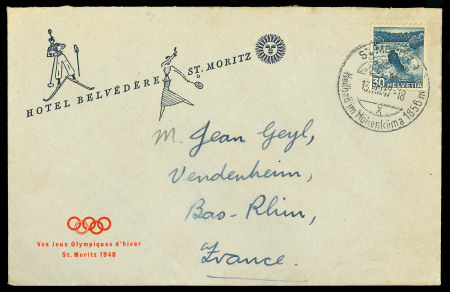 HOTEL BELVÉDÈRE ST. MORITZ
30 HELVETIA
Heilbad im Hochenklima 1856 m
M. Jean Geyl,
Vendenheim,
Bas-Rhin,
France.
Ves Jeux Olympiques d'hiver
St. Moritz 1948